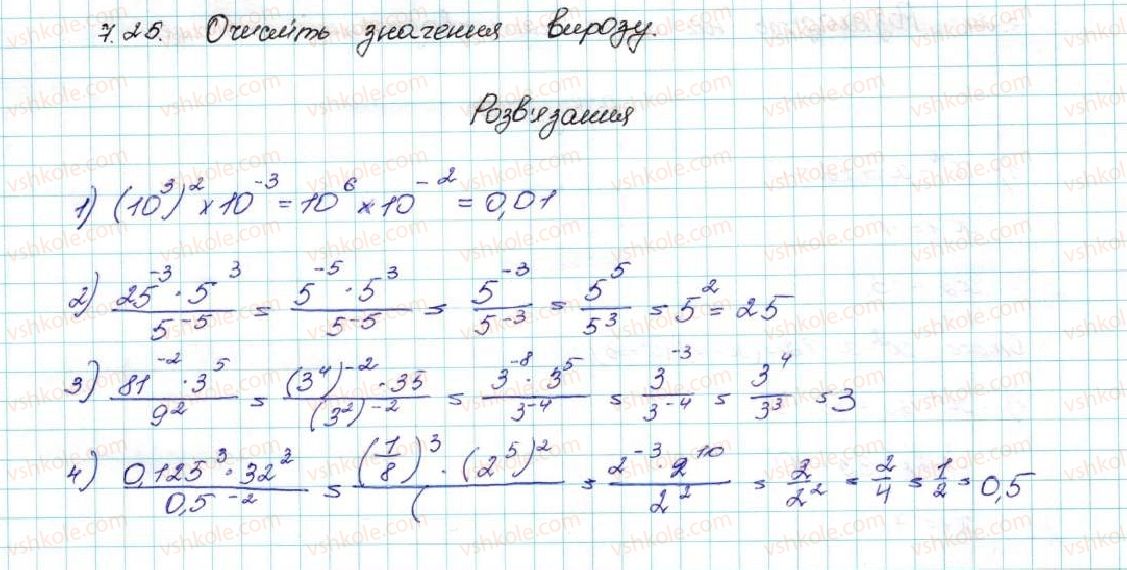 7.25. Очисліть значення вирозу.
Розв'язання
1) (10³)² × 10⁻³ = 10⁶ × 10⁻² = 0,01
2) (25⁻³ · 5³)/(5⁻⁵) = (5⁻⁵ · 5³)/(5⁻⁵) = (5⁻³)/(5⁻³) = (5⁵)/(5³) = 5² = 25
3) (81⁻² · 3⁵)/(9²) = ((3⁴)⁻² · 35)/((3²)⁻²) = (3⁻⁸ · 3⁵)/(3⁻⁴) = (3⁻³)/(3⁻⁴) = (3⁴)/(3³) = 3
4) (0,125³ · 32²)/(0,5⁻²) = ((1/8)³ · (2⁵)²)/( = (2⁻³ · 2¹⁰)/(2²) = 2/(2²) = 2/4 = 1/2 = 0,5